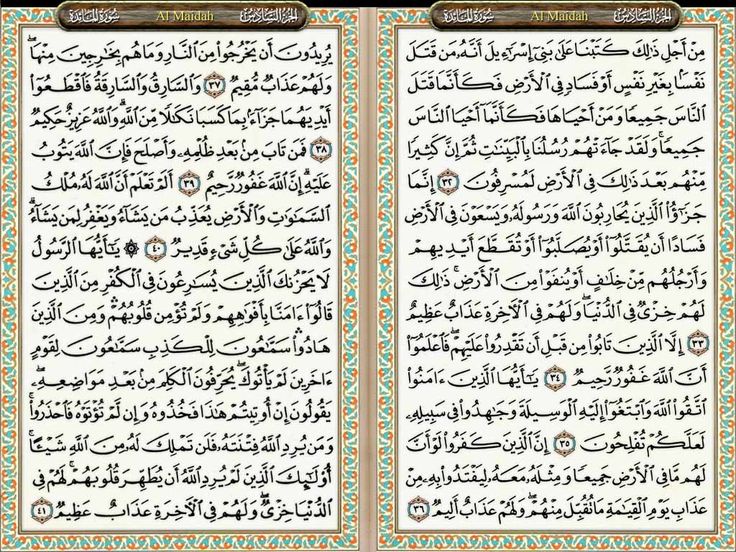 الجزء السادس
Al Maidah
سورة المائدة
مِنْ أَجْلِ ذَٰلِكَ كَتَبْنَا عَلَىٰ بَنِىٓ إِسْرَٰٓءِيلَ أَنَّهُۥ مَن قَتَلَ
نَفْسًۢا بِغَيْرِ نَفْسٍ أَوْ فَسَادٍ فِى ٱلْأَرْضِ فَكَأَنَّمَا قَتَلَ
ٱلنَّاسَ جَمِيعًا وَمَنْ أَحْيَاهَا فَكَأَنَّمَآ أَحْيَا ٱلنَّاسَ
جَمِيعًا ۚ وَلَقَدْ جَآءَتْهُمْ رُسُلُنَا بِٱلْبَيِّنَٰتِ ثُمَّ إِنَّ كَثِيرًا
مِّنْهُم بَعْدَ ذَٰلِكَ فِى ٱلْأَرْضِ لَمُسْرِفُونَ ٣٢ إِنَّمَا
جَزَٰٓؤُا۟ ٱلَّذِينَ يُحَارِبُونَ ٱللَّهَ وَرَسُولَهُۥ وَيَسْعَوْنَ فِى ٱلْأَرْضِ
فَسَادًا أَن يُقَتَّلُوٓا۟ أَوْ يُصَلَّبُوٓا۟ أَوْ تُقَطَّعَ أَيْدِيهِمْ
وَأَرْجُلُهُم مِّنْ خِلَٰفٍ أَوْ يُنفَوْا۟ مِنَ ٱلْأَرْضِ ۚ ذَٰلِكَ
لَهُمْ خِزْىٌ فِى ٱلدُّنْيَا ۖ وَلَهُمْ فِى ٱلْءَاخِرَةِ عَذَابٌ عَظِيمٌ
٣٣ إِلَّا ٱلَّذِينَ تَابُوا۟ مِن قَبْلِ أَن تَقْدِرُوا۟ عَلَيْهِمْ ۖ فَٱعْلَمُوٓا۟
أَنَّ ٱللَّهَ غَفُورٌ رَّحِيمٌ ٣٤ يَٰٓأَيُّهَا ٱلَّذِينَ ءَامَنُوا۟
ٱتَّقُوا۟ ٱللَّهَ وَٱبْتَغُوٓا۟ إِلَيْهِ ٱلْوَسِيلَةَ وَجَٰهِدُوا۟ فِى سَبِيلِهِۦ
لَعَلَّكُمْ تُفْلِحُونَ ٣٥ إِنَّ ٱلَّذِينَ كَفَرُوا۟ لَوْ أَنَّ
لَهُم مَّا فِى ٱلْأَرْضِ جَمِيعًا وَمِثْلَهُۥ مَعَهُۥ لِيَفْتَدُوا۟ بِهِۦ مِنْ
عَذَابِ يَوْمِ ٱلْقِيَٰمَةِ مَا تُقُبِّلَ مِنْهُمْ ۖ وَلَهُمْ عَذَابٌ أَلِيمٌ ٣٦
الجزء السادس
Al Maidah
سورة المائدة
يُرِيدُونَ أَن يَخْرُجُوا۟ مِنَ ٱلنَّارِ وَمَا هُم بِخَٰرِجِينَ مِنْهَا ۖ
وَلَهُمْ عَذَابٌ مُّقِيمٌ ٣٧ وَٱلسَّارِقُ وَٱلسَّارِقَةُ فَٱقْطَعُوٓا۟
أَيْدِيَهُمَا جَزَآءًۢ بِمَا كَسَبَا نَكَٰلًا مِّنَ ٱللَّهِ ۗ وَٱللَّهُ عَزِيزٌ حَكِيمٌ
٣٨ فَمَن تَابَ مِنۢ بَعْدِ ظُلْمِهِۦ وَأَصْلَحَ فَإِنَّ ٱللَّهَ يَتُوبُ
عَلَيْهِ ۗ إِنَّ ٱللَّهَ غَفُورٌ رَّحِيمٌ ٣٩ أَلَمْ تَعْلَمْ أَنَّ ٱللَّهَ لَهُۥ مُلْكُ
ٱلسَّمَٰوَٰتِ وَٱلْأَرْضِ يُعَذِّبُ مَن يَشَآءُ وَيَغْفِرُ لِمَن يَشَآءُ ۗ
وَٱللَّهُ عَلَىٰ كُلِّ شَىْءٍ قَدِيرٌ ٤٠ ۞ يَٰٓأَيُّهَا ٱلرَّسُولُ
لَا يَحْزُنكَ ٱلَّذِينَ يُسَٰرِعُونَ فِى ٱلْكُفْرِ مِنَ ٱلَّذِينَ
قَالُوٓا۟ ءَامَنَّا بِأَفْوَٰهِهِمْ وَلَمْ تُؤْمِن قُلُوبُهُمْ ۛ وَمِنَ ٱلَّذِينَ
هَادُوا۟ ۛ سَمَّٰعُونَ لِلْكَذِبِ سَمَّٰعُونَ لِقَوْمٍ
ءَاخَرِينَ لَمْ يَأْتُوكَ ۖ يُحَرِّفُونَ ٱلْكَلِمَ مِنۢ بَعْدِ مَوَاضِعِهِۦ ۖ
يَقُولُونَ إِنْ أُوتِيتُمْ هَٰذَا فَخُذُوهُ وَإِن لَّمْ تُؤْتَوْهُ فَٱحْذَرُوا۟ ۚ
وَمَن يُرِدِ ٱللَّهُ فِتْنَتَهُۥ فَلَن تَمْلِكَ لَهُۥ مِنَ ٱللَّهِ شَيْـًٔا ۚ
أُو۟لَٰٓئِكَ ٱلَّذِينَ لَمْ يُرِدِ ٱللَّهُ أَن يُطَهِّرَ قُلُوبَهُمْ ۚ لَهُمْ فِى
ٱلدُّنْيَا خِزْىٌ ۖ وَلَهُمْ فِى ٱلْءَاخِرَةِ عَذَابٌ عَظِيمٌ ٤١